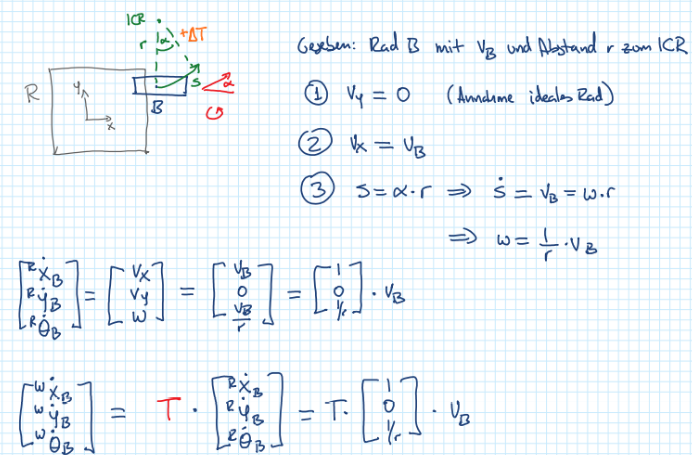 ICR
r α +ΔT
s α
R y x B
Gegeben: Rad B mit V_B und Abstand r zum ICR
① V_y = 0 (Annahme ideales Rad)
② V_x = V_B
③ s = α · r ⇒ ṡ = V_B = ω · r
⇒ ω = 1/r · V_B
[ᴿẋ_B ᴿẏ_B ᴿθ̇_B] = [V_x V_y ω] = [V_B 0 V_B/r] = [1 0 1/r] · V_B
[ᵂẋ_B ᵂẏ_B ᵂθ̇_B] = T · [ᴿẋ_B ᴿẏ_B ᴿθ̇_B] = T · [1 0 1/r] · V_B